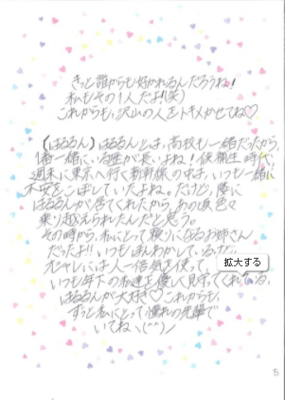 きっと誰からも好かれるんだろうね!
私もその1人だよ!(笑)
これからも、沢山の人をトキメかせてね♡
(はるるん)はるるんとは、高校も一緒だったから、
1番一緒にいる歴が長いよね!候補生時代、
週末に東京へ行く新幹線の中は、いつも一緒に
不安をこぼしていたよね。だけど、隣に
はるるんが居てくれたから、あの頃色々
乗り越えられたんだと思う。
その時から、私にとって頼りになるお姉さん
だったよ!!いつもほんわかしている
オシャレには人一倍気を使って、
いつも年下の私達を優しく見守ってくれている、
はるるんが大好き♡これからも、
ずっと私にとって憧れの先輩で
いてねヽ(^^)ノ
拡大する